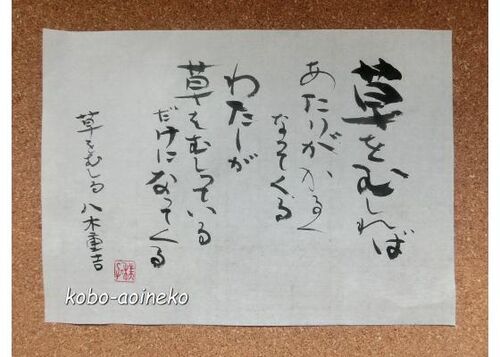 草をむしれば
あたりがかるく
なってくる
わたしが
草をむしっている
だけになってくる
草をむしる 八木重吉
kobo-aoineko